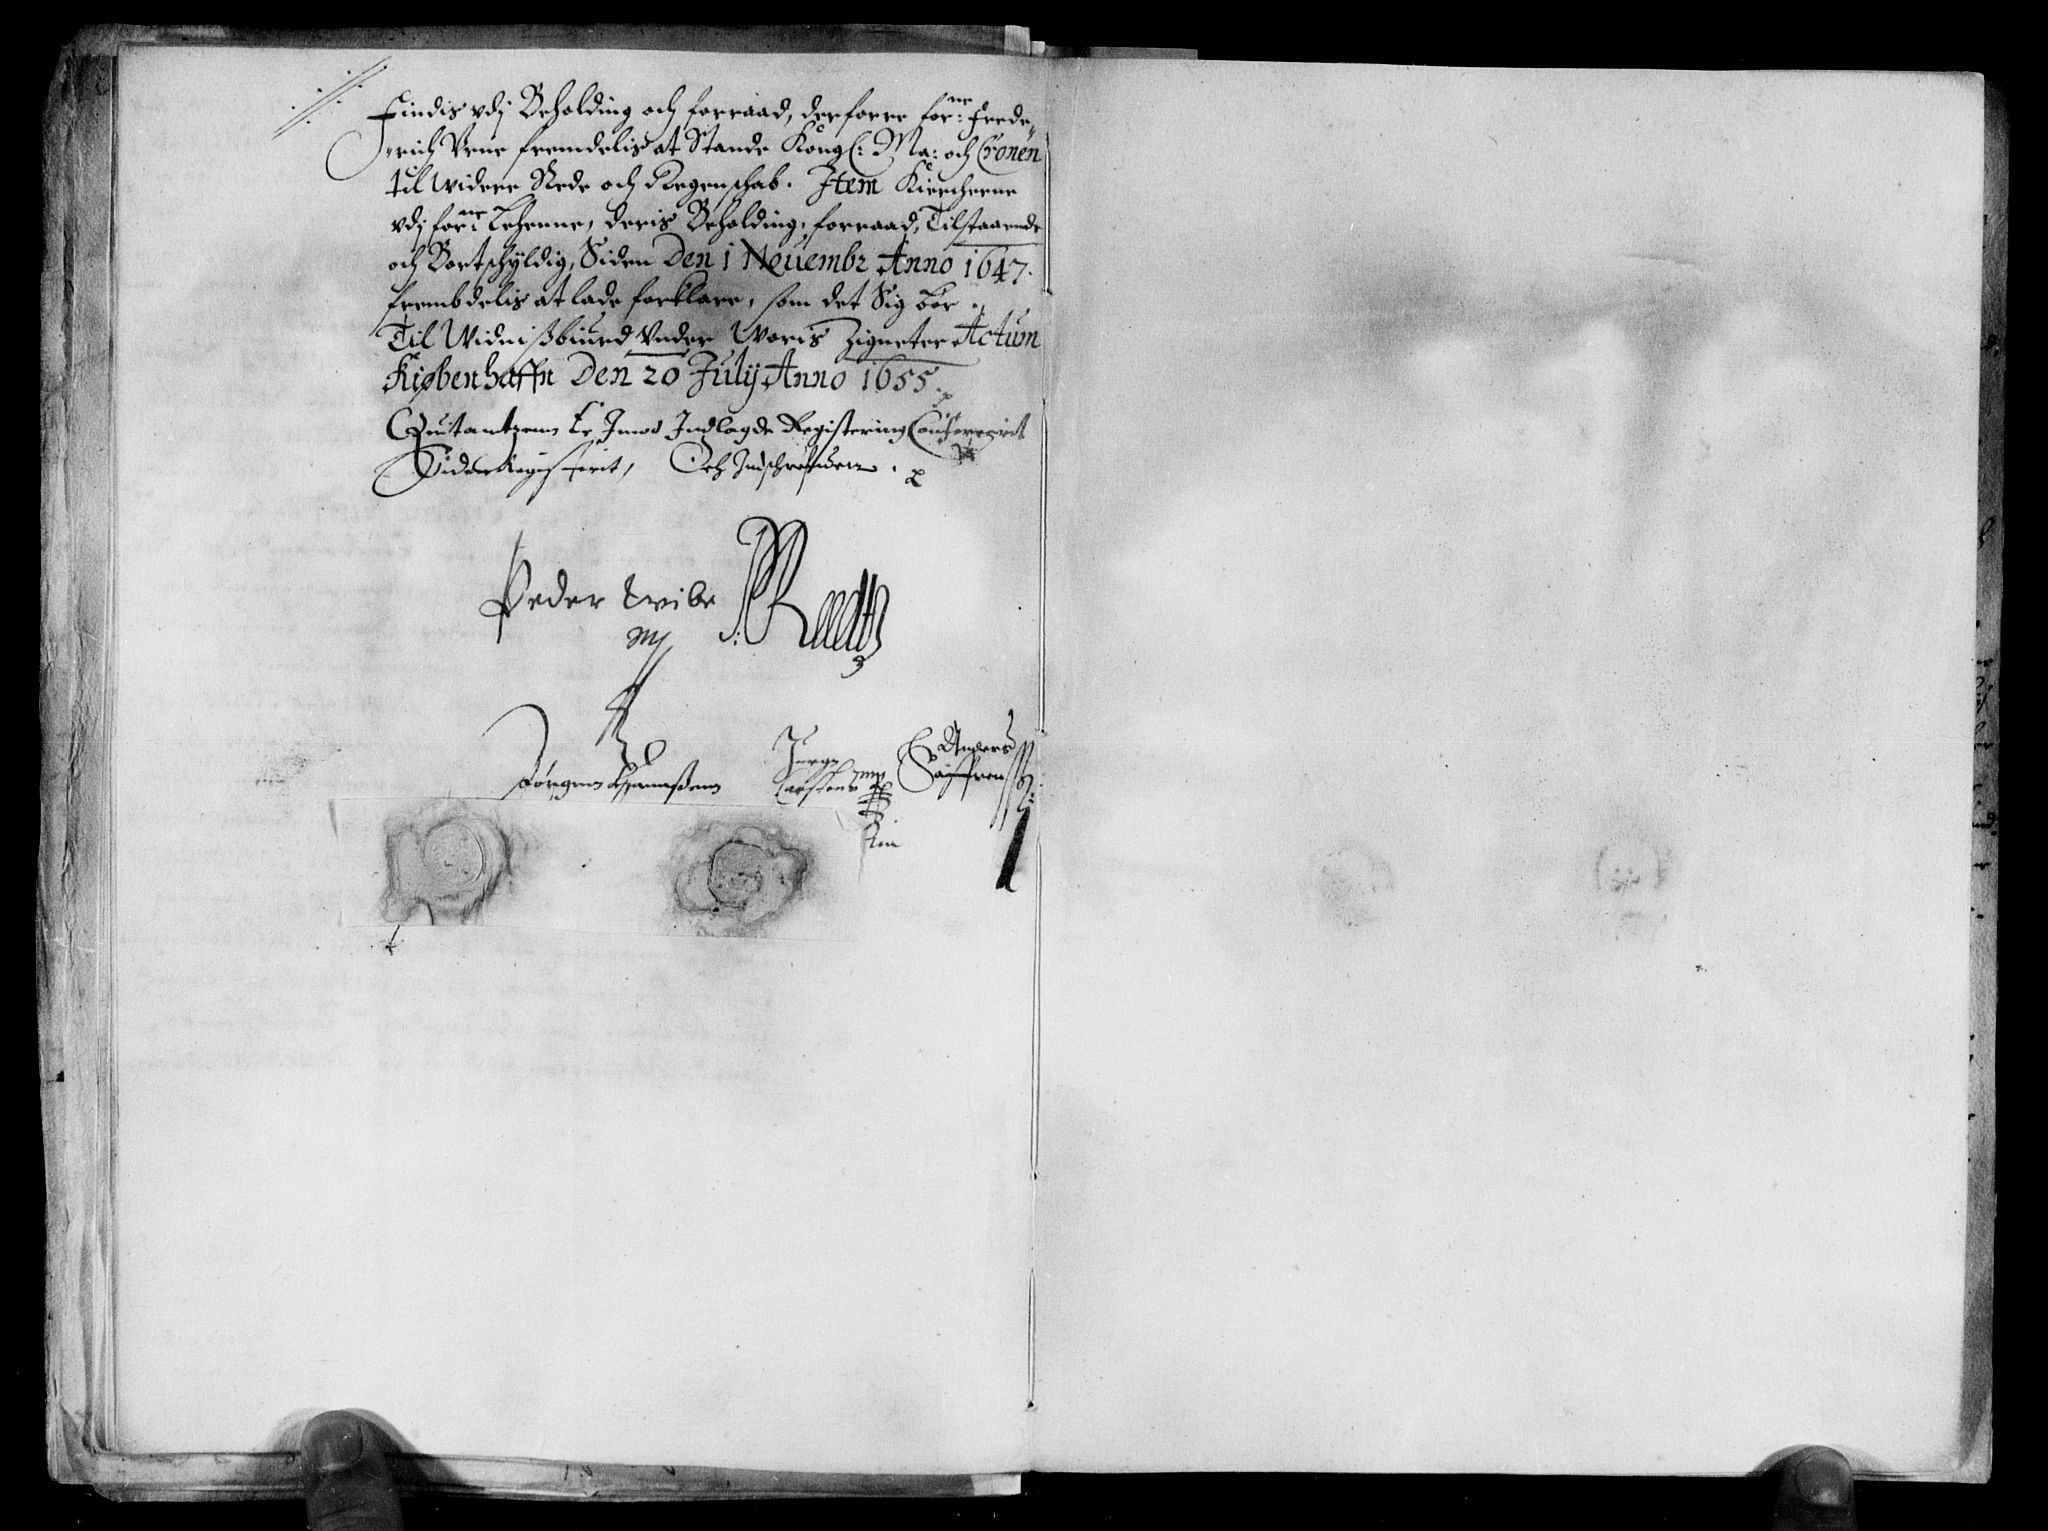 Findis vdj Beholding och forraad, derforre for:ne Frede,,
,,rich Vrne fremdelis at Stande Kong L: Ma: och Cronen
til widere Rede och Regenschab. Item Kiercherne
vdj for:ne Lehenne, deris Beholding, forraad, Tilstaarende
och Bortschÿldig, Siden Den 1 Nouembr Anno 1647.
frembdelis at lade forklare, som det Sig bør.
Til Widnißbiurd Vnder Woris Zigneter Actum
Kiøbenhaffn Den 20 Julÿ Anno 1655.
Quitantzenn Er Imod Indlagde Registering Confererit
Sider Registerit, Och Indschreffuen.
Peder Wibe
mp
Reedtz
Jørgen
Jurgen
Carstens mp
Anders
Søffrensen